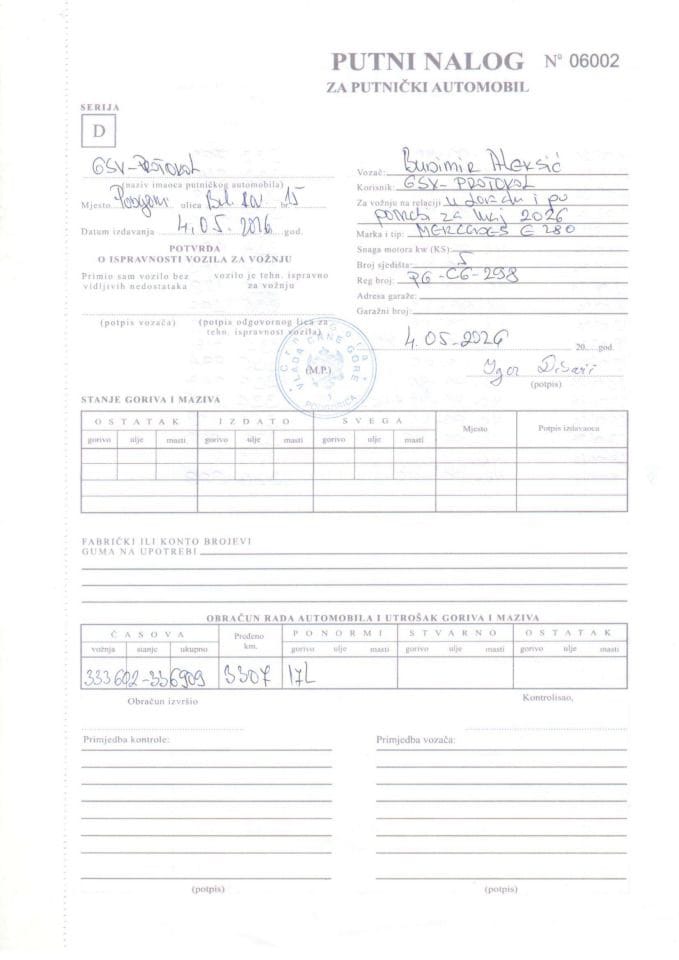 PUTNI NALOG Nº 06002
ZA PUTNIČKI AUTOMOBIL
SERIJA
D
GSV-PROTOKOL
(naziv imaoca putničkog automobila)
Mjesto Podgorica ulica br. 15
Datum izdavanja 4.05.2026 god.
POTVRDA
O ISPRAVNOSTI VOZILA ZA VOŽNJU
Primio sam vozilo bez vidljivih nedostataka
vozilo je tehn. ispravno za vožnju
(potpis vozača)
(potpis odgovornog lica za tehn. ispravnost vozila)
Vozač: Budimir Aleksić
Korisnik: GSV-PROTOKOL
Za vožnju na relaciji u gradu i po
potrebi za maj 2026
Marka i tip: MERCEDES E 280
Snaga motora kw (KS):
Broj sjedišta: 5
Reg broj: PG-CG-298
Adresa garaže:
Garažni broj:
4.05.2026 20 god.
Igor
(potpis)
Crna Gora
VLADA CRNE GORE
(M.P.)
1
PODGORICA
STANJE GORIVA I MAZIVA
OSTATAK IZDATO SVEGA Mjesto Potpis izdavaoca
gorivo ulje masti gorivo ulje masti gorivo ulje masti
FABRIČKI ILI KONTO BROJEVI
GUMA NA UPOTREBI
OBRAČUN RADA AUTOMOBILA I UTROŠAK GORIVA I MAZIVA
ČASOVA Pređeno km. PO NORMI STVARNO OSTATAK
vožnja stanje ukupno gorivo ulje masti gorivo ulje masti gorivo ulje masti
333602-336909 3307 17L
Obračun izvršio
Kontrolisao,
Primjedba kontrole:
Primjedba vozača:
(potpis)
(potpis)